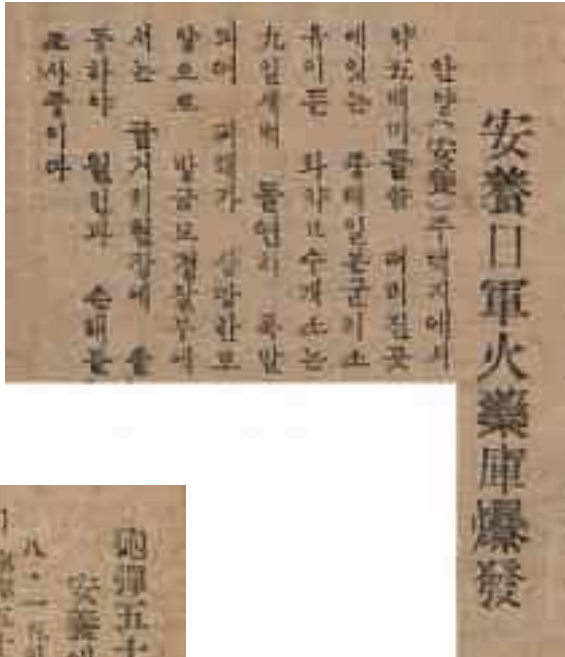 安養日軍火藥庫爆發
안양(安養)주택지에서
약五백미돌쯤 떠러진곳
에잇는 종래일본군이소
유이든 화약고수개소는
九일새벽 돌연히 폭발
되여 피해가 상당한모
양으로 방금모경찰부에
서는 급거히현장에 출
동하야 원인과 손해를
조사중이다
砲彈五十
安養
八・一五